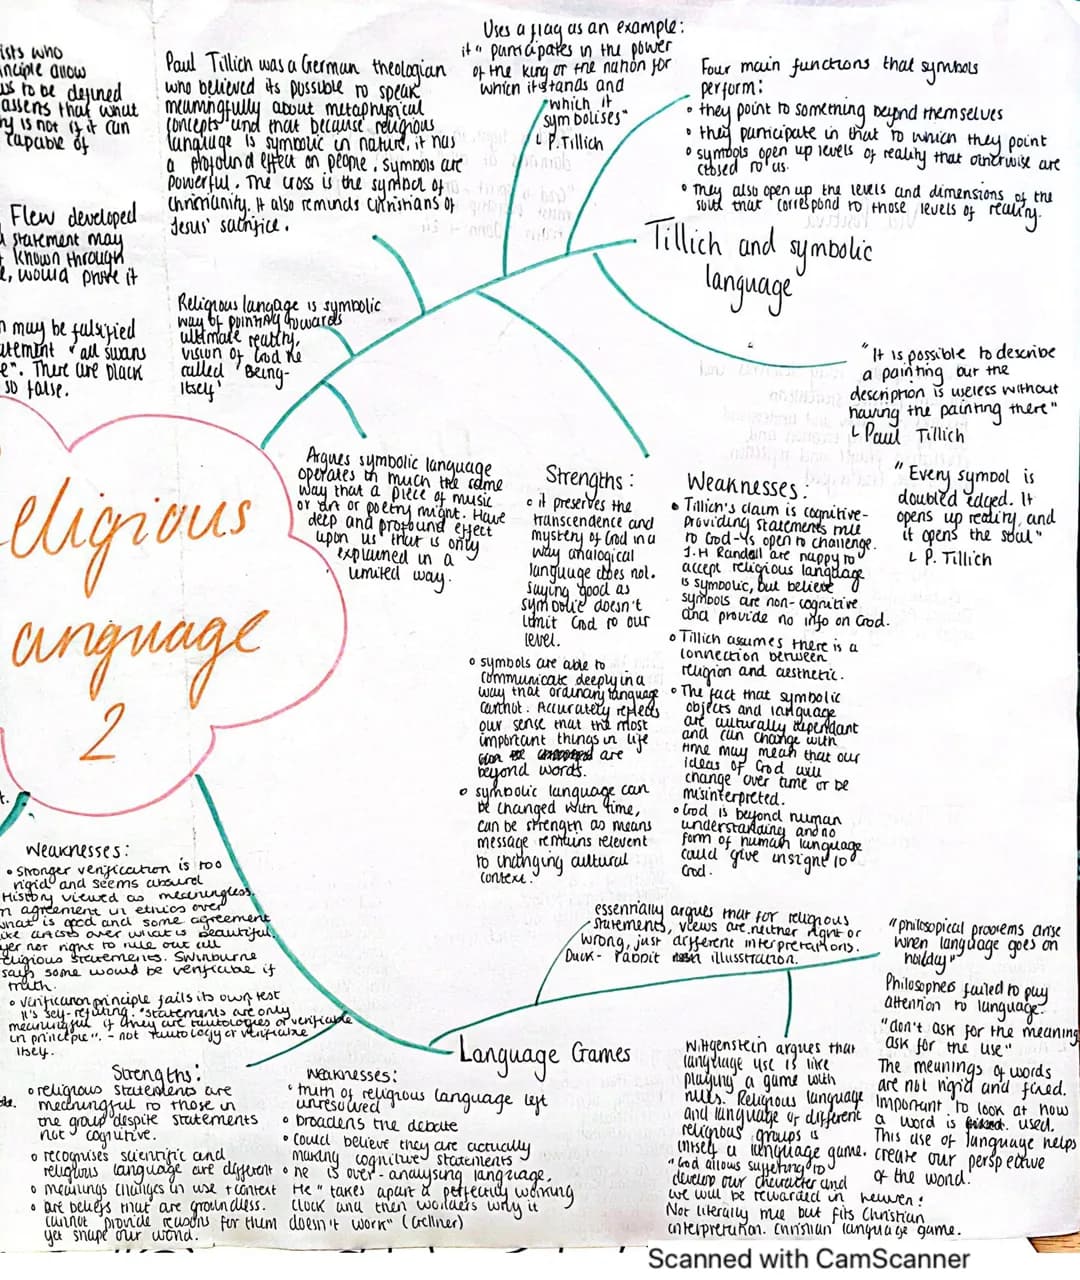 ists who
inciple allow
us to be defined
assens that what
hy is not if it can
capable of
Flew developed
d statement may
t known through
e, would prove it
n may be falsified
atement "all swans
e". There are black
so false.
Paul Tillich was a German theologian
who believed its possible to speak
meaningfully about metaphysical
concepts und that because religious
language is symbolic in nature, it has
a profound effect on people. Symbols are
powerful. The cross is the symbol of
Christianity. It also reminds Christians of
Jesus' sacrifice.
Uses a flag as an example:
it "participates in the power
of the king or the nation for
which it stands and
which it
symbolises"
↳ P.Tillich
Four main functions that symbols
perform:
• they point to something beyond themselves
• they participate in that to which they point
• symbols open up levels of reality that otherwise are
closed to us.
• They also open up the levels and dimensions of the
soul that correspond to those levels of reality.
Tillich and symbolic
language
Religious langage is symbolic
way of pointing towards
ultimate reality,
vision of God he
called 'Being-
Itself'
"It is possible to describe
a painting but the
description is useless without
having the painting there"
↳ Paul Tillich
"Every symbol is
doubled edged. It
opens up reality, and
it opens the soul"
↳ P. Tillich
eligious
anguage
2
Argues symbolic language
operates in much the same
way that a piece of music
or art or poetry might. Have
deep and profound effect
upon us that is only
explained in a
limited way.
Strengths:
• it preserves the
transcendence and
mystery of God in a
way analogical
language does not.
Saying good as
symbolic doesn't
limit God to our
level.
• symbols are able to
communicate deeply in a
way that ordinary language
cannot. Accurately reflects
our sense that the most
important things in life
are
beyond words.
• symbolic language can
be changed with time,
can be strength as means
message remains relevent
to changing cultural
context.
Weaknesses:
• Tillich's claim is cognitive-
providing statements true
to God-4s open to challenge.
J.H Randall are happy to
accept religious language
is symbolic, but believe
symbols are non-cognitive
and provide no info on God.
• Tillich assumes there is a
connection between
religion and aesthetic.
• The fact that symbolic
objects and language
are culturally dependant
and can change with
time may mean that our
ideas of God will
change over time or be
misinterpreted.
• God is beyond human
understanding and no
form of human language
could give insight to
God.
t.
Weaknesses:
• Stronger verification is too
rigid and seems absurd
History viewed as meaningless.
n agreement in ethics over
what is good and some agreement
ike artists over what is beautiful.
yer not right to rule out all
religious statements. Swinburne
says some would be verifiable if
truth.
• verification principle fails its own test
It's self-refuting. "statements are only
meaningful if they are tautologies or verifiable
in principle". - not tautology or verifiable
itself.
essentially argues that for religious
statements, views are neither right or
wrong, just different interpretations.
Duck-rabbit illusstration.
"philosopical problems arise
when language goes on
holiday"
Philosophes failed to pay
attention to language.
"don't ask for the meaning
ask for the use"
The meanings of words
are not rigid and fixed.
Important to look at how
a word is used.
This use of language helps
create our perspective
of the world.
Language Games
Wittgenstein argues that
language use is like
playing a game with
rules. Religious language
and language of different
religious groups is
itself a language game.
"God allows suffering to
develop our character and
we will be rewarded in heaven!
Not literally true but fits Christian
interpretation. Christian language game.
Strengths:
• religious statements are
meaningful to those in
the group despite statements
not cognitive.
• recognises scientific and
religious language are different
• meanings changes in use + context
• are beliefs that are groundless.
cannot provide reasons for them
yet shape our world.
ble.
Weaknesses:
• truth of religious language left
unresolved
• broadens the debate
• could believe they are actually
making cognitive statements
• he is over-analysing language,
He "takes apart a perfectly working
clock and then wonders why it
doesn't work" (Gellner)
Scanned with CamScanner